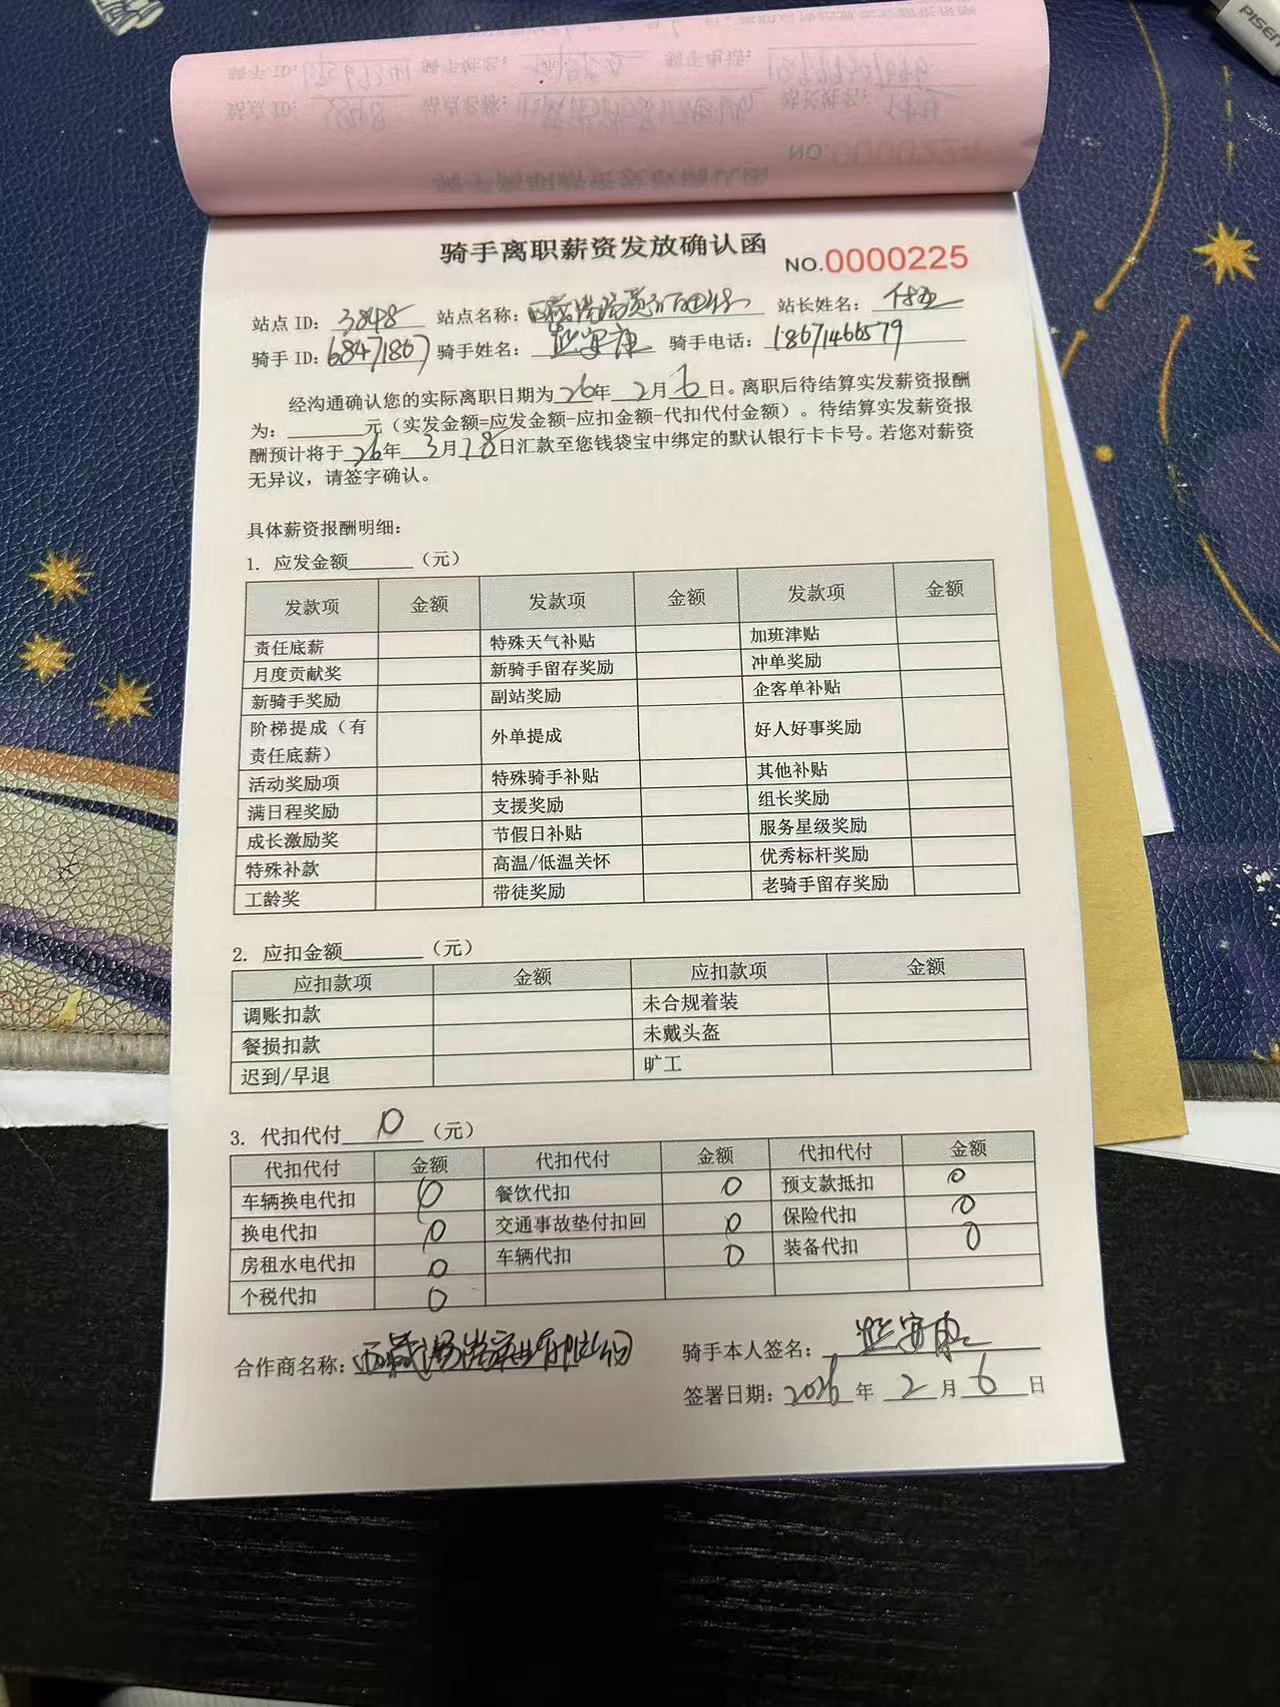 PISEN
骑手离职薪资发放确认函 NO.0000225
站点 ID: 3848 站点名称: 西藏 站长姓名:
骑手 ID: 68471867 骑手姓名: 安康 骑手电话: 18671466579
经沟通确认您的实际离职日期为 26 年 2 月 6 日。离职后待结算实发薪资报酬
为: 元(实发金额=应发金额-应扣金额-代扣代付金额)。待结算实发薪资报
酬预计将于 26 年 3 月 18 日汇款至您钱袋宝中绑定的默认银行卡卡号。若您对薪资
无异议，请签字确认。
具体薪资报酬明细:
1. 应发金额 (元)
发款项 金额 发款项 金额 发款项 金额
责任底薪 特殊天气补贴 加班津贴
月度贡献奖 新骑手留存奖励 冲单奖励
新骑手奖励 副站奖励 企客单补贴
阶梯提成（有
责任底薪） 外单提成 好人好事奖励
活动奖励项 特殊骑手补贴 其他补贴
满日程奖励 支援奖励 组长奖励
成长激励奖 节假日补贴 服务星级奖励
特殊补款 高温/低温关怀 优秀标杆奖励
工龄奖 带徒奖励 老骑手留存奖励
2. 应扣金额 (元)
应扣款项 金额 应扣款项 金额
调账扣款 未合规着装
餐损扣款 未戴头盔
迟到/早退 旷工
3. 代扣代付 0 (元)
代扣代付 金额 代扣代付 金额 代扣代付 金额
车辆换电代扣 0 餐饮代扣 0 预支款抵扣 0
换电代扣 0 交通事故垫付扣回 0 保险代扣 0
房租水电代扣 0 车辆代扣 0 装备代扣 0
个税代扣 0
合作商名称: 西藏 骑手本人签名: 安康
签署日期: 2026 年 2 月 6 日